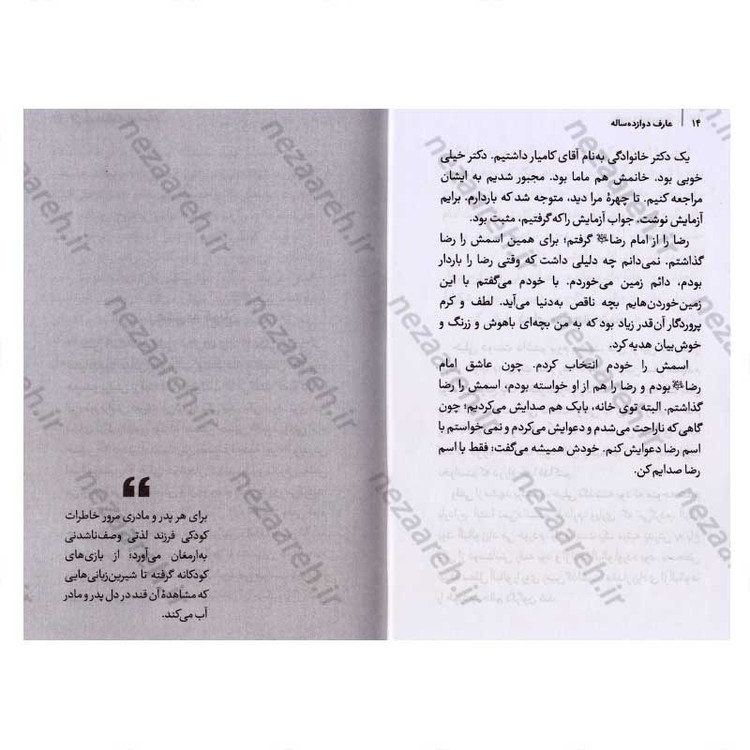 ۱۴ | عارف دوازده‌ساله
یک دکتر خانوادگی به‌نام آقای کامیار داشتیم. دکتر خیلی
خوبی بود. خانمش هم ماما بود. مجبور شدیم به ایشان
مراجعه کنیم. تا چهرهٔ مرا دید، متوجه شد که باردارم. برایم
آزمایش نوشت. جواب آزمایش را که گرفتیم، مثبت بود.
رضا را از امام رضا گرفتم؛ برای همین اسمش را رضا
گذاشتم. نمی‌دانم چه دلیلی داشت که وقتی رضا را باردار
بودم، دائم زمین می‌خوردم. با خودم می‌گفتم با این
زمین‌خوردن‌هایم بچه ناقص به‌دنیا می‌آید. لطف و کرم
پروردگار آن‌قدر زیاد بود که به من بچه‌ای باهوش و زرنگ و
خوش‌بیان هدیه کرد.
اسمش را خودم انتخاب کردم. چون عاشق امام
رضا بودم و رضا را هم از او خواسته بودم، اسمش را رضا
گذاشتم. البته توی خانه، بابک هم صدایش می‌کردیم؛ چون
گاهی که ناراحت می‌شدم و دعوایش می‌کردم و نمی‌خواستم با
اسم رضا دعوایش کنم. خودش همیشه می‌گفت: فقط با اسم
رضا صدایم کن.
❝
برای هر پدر و مادری مرور خاطرات
کودکی فرزند لذتی وصف‌ناشدنی
به‌ارمغان می‌آورد؛ از بازی‌های
کودکانه گرفته تا شیرین‌زبانی‌هایی
که مشاهدهٔ آن قند در دل پدر و مادر
آب می‌کند.
nezaareh.ir
nezaareh.ir
nezaareh.ir
nezaareh.ir
nezaareh.ir
nezaareh.ir
nezaareh.ir
nezaareh.ir
nezaareh.ir
nezaareh.ir
nezaareh.ir
nezaareh.ir